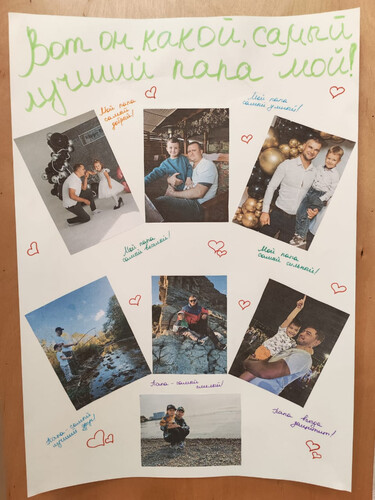 Вот он какой, самый
лучший папа мой!
Мой папа
самый
добрый!
Мой папа
самый умный!
Мой папа
самый
Мой папа
самый сильный!
Папа - самый
лучший друг!
Папа - самый
смелый!
Папа всегда